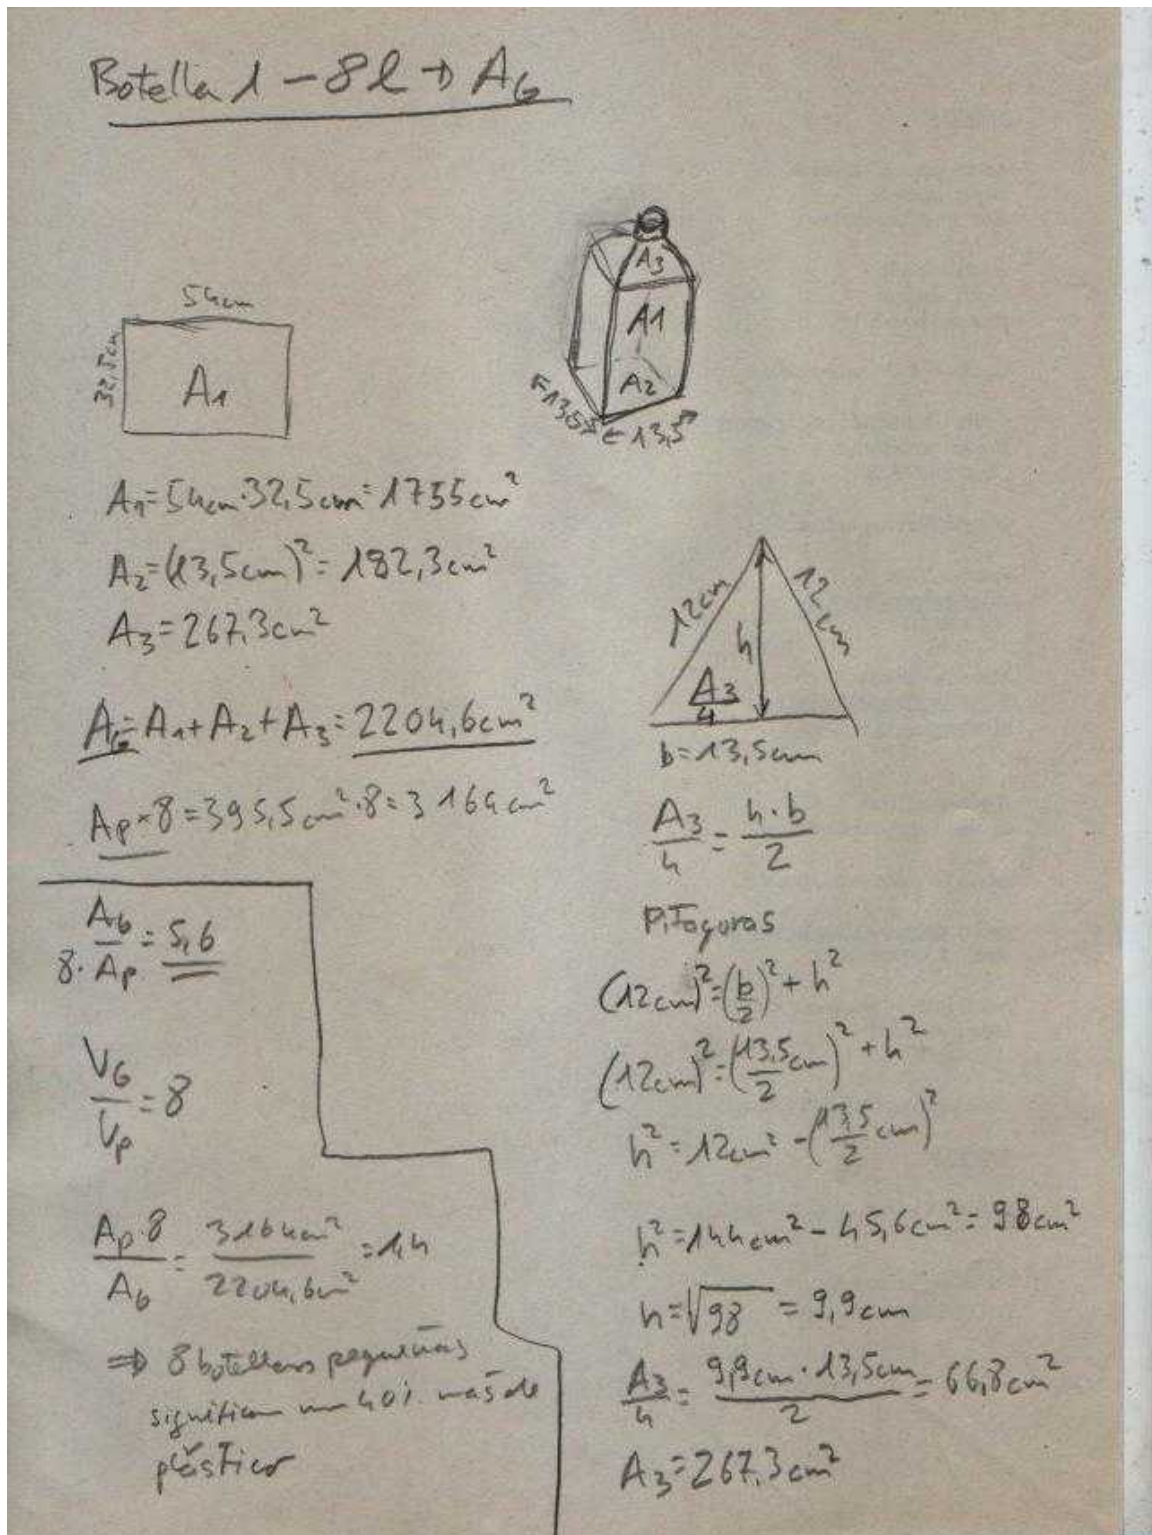 Botella 1 – 8l → A_G
54cm
32,5cm
A₁
A3
A1
A2
←13,5→
←13,5→
A₁=54cm·32,5cm=1755cm²
A₂=(13,5cm)²=182,3cm²
A₃=267,3cm²
A_G=A₁+A₂+A₃=2204,6cm²
A_P×8=395,5cm²·8=3164cm²
A_G/8·A_P=5,6
V_G/V_P=8
A_P·8/A_G=3164cm²/2204,6cm²=1,4
⇒ 8 botellas pequeñas
significan un 40% más de
plástico
12cm
12cm
h
A₃/4
b=13,5cm
A₃/4=h·b/2
Pitagoras
(12cm)²=(b/2)²+h²
(12cm)²=(13,5/2 cm)²+h²
h²=12cm²-(13,5/2 cm)²
h²=144cm²-45,6cm²=98cm²
h=√98=9,9cm
A₃/4=9,9cm·13,5cm/2=66,8cm²
A₃=267,3cm²